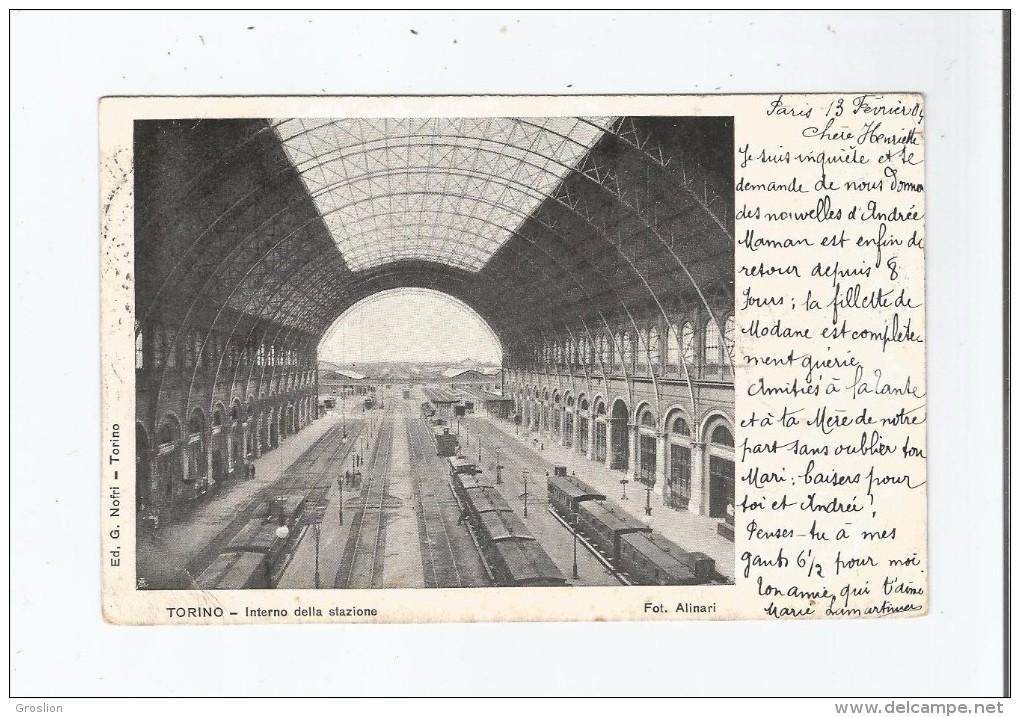 Paris 13 Février 04
Chère Henriette
Je suis inquiète et te
demande de nous donner
des nouvelles d'Andrée
Maman est enfin de
retour depuis 8
Jours ; la fillette de
Modane est complète
ment guérie
Amitiés à la Tante
et à ta Mère de notre
part sans oublier ton
Mari ; baisers pour
toi et Andrée !
Penses-tu à mes
gants 6 1/2 pour moi
Ton amie qui t'aime
Marie
Ed. G. Nofri - Torino
TORINO - Interno della stazione
Fot. Alinari
Groslion
www.delcampe.net